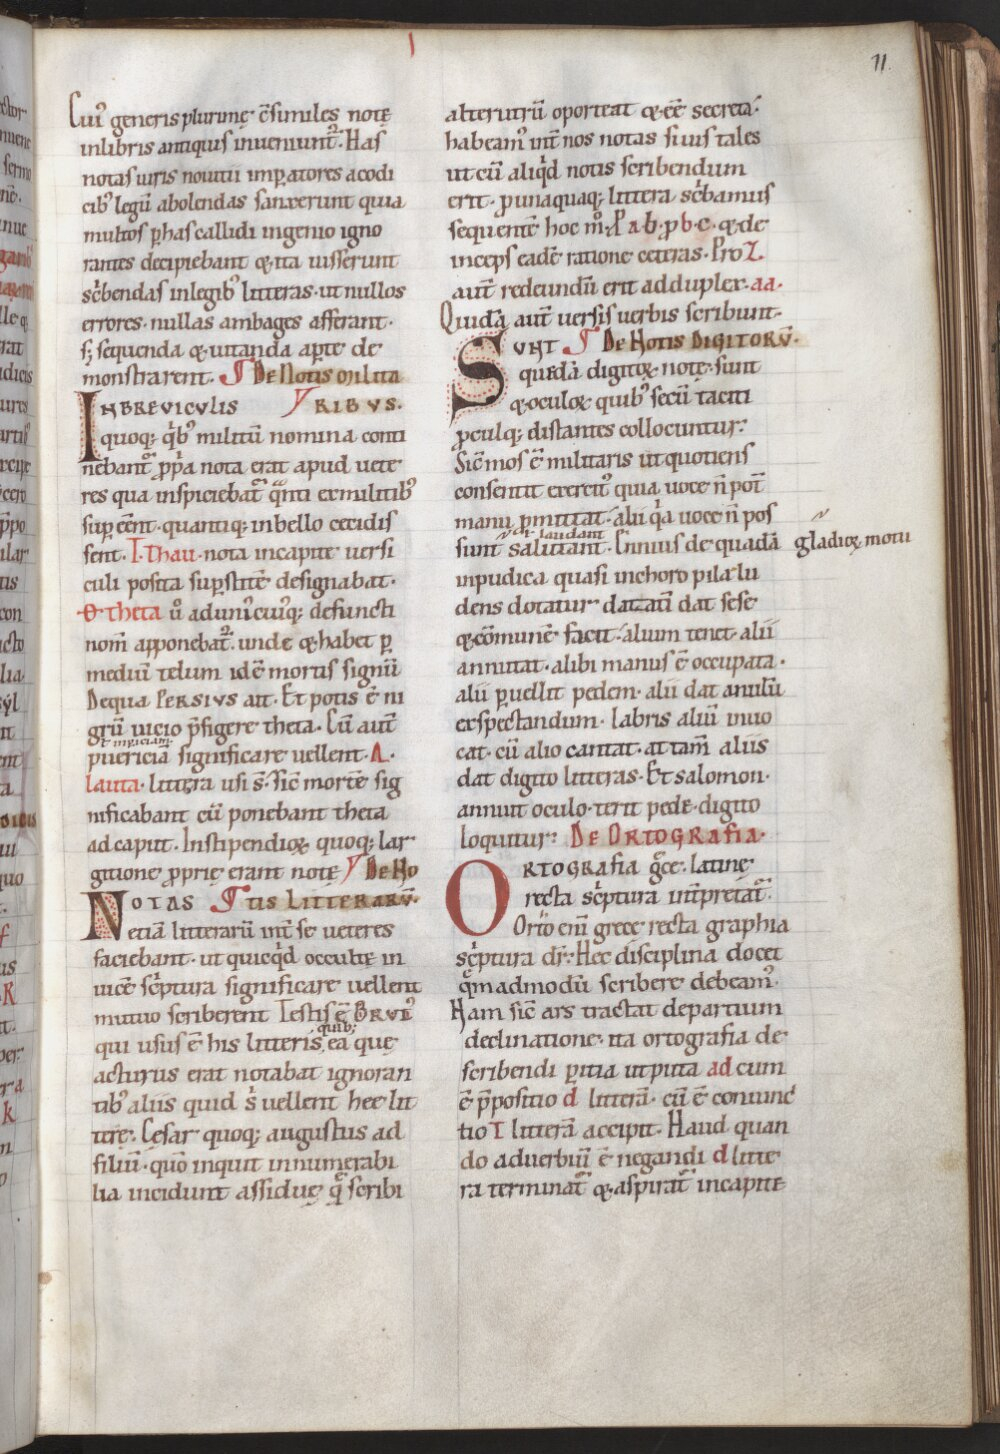 11.
Cui᾽ generis plurimę c̄similes notę
inlibris antiquis inueniunt᾽. Has
notas iuris nouitii imꝑatores acodi
cib᾽ legū abolendas sanxerunt quia
multos ꝑhas callidi ingenio igno
rantes decipiebant & ita iusserunt
sc̄bendas inlegib᾽ litteras. ut nullos
errores. nullas ambages afferant.
s; sequenda & uitanda aꝑte de
monstrarent. De Notis milita
INBREVICVLIS RIBVS.
quoq; q̄b᾽ militū nomina conti
nebant᾽ ꝓp̄a nota erat apud uete
res qua inspiciebat᾽ q̄nti exmilitib᾽
suꝑ eēnt. quantiq; inbello cecidis
sent. T. thau. nota incapite versi
culi posita suꝑstitē designabat.
Θ theta u᷎ aduniᶜcui᾽q; defuncti
nom̄ apponebat᾽. unde & habet ꝑ
mediū telum idē mortis signū
Dequa PERSIVS ait. Et potis ē ni
grū uicio p̄figere theta. Cū aut̄
ł inpericiam
puericia significare uellent. Λ.
lauta. littera usi s̄. Sic̄ mortē sig
nificabant cū ponebant theta
adcaput. Instipendioꝝ quoq; lar
gitione ꝓprię erant notę De No
NOTAS TIS LITTERARV̄.
etiā litterarū int̄ se ueteres
faciebant. ut quicq̇d occultę in
uicē sc̄ptura significare uellent
mutuo scriberent Testis ē BRVT᾽
quib;
qui usus ē his litteris, ea quę
acturus erat notabat ignoran
tib᾽ aliis quid s᷎ uellent hee lit
tere. Cesar quoq; augustus ad
filiū. quō inquit innumerabi
lia incidunt assidue q̄ scribi
alterutrū oporteat & ēē secreta.
habeam᾽ int̄ nos notas si uis tales
ut cū aliq̇d notis scribendum
erit. ꝓ unaquaq; littera sc̄bamus
sequentē hoc m᷎. ꝑ a. b. ꝓ b. c. & de
inceps eadē ratione ceteras. Pro Z.
aut̄ redeundū erit adduplex. aa.
Quidā aut̄ versis uerbis scribunt.
SVNT De Notis DIGITORV̄.
quedā digitoꝝ. note. sunt
& oculoꝝ quib᾽ secū taciti
ꝓculq; distantes collocuntur.
Sic̄ mos ē militaris ut quotiens
consentit exercit᾽ quia uoce n̄ pot̄
manu ꝓmittat. alii q̄a uoce n̄ pos
ł laudant
sunt salutant. Ennius de quadā
gladioꝝ motu
inpudica quasi inchoro pila lu
dens dotatur datatī dat sese
& cōmunē facit. alium tenet. alii
annutat. alibi manus ē occupata.
alii ꝑuellit pedem. alii dat anulū
exspectandum. labris aliū inuo
cat. cū alio cantat. attam̄ aliis
dat digito litteras. Et salomon.
annuit oculo. terit pede. digito
loquitur. De ORTOGRAFIA.
ORTOGRAFIA gᷓce. latinę
recta sc̄ptura int̄pretat᾽.
Orto eni᷎ grece recta graphia
sc̄ptura dr̄. Hec disciplina docet
q̄madmodū scribere debeam᾽.
Nam sic̄ ars tractat departium
declinatione. ita ortografia de
scribendi ꝑitia utputa ad cum
ē p̄positio d litterā. cū ē coniunc
tio T litterā accipit. Haud quan
do aduerbiū ē negandi d litte
ra terminat᾽ & aspirat᾽ incapite